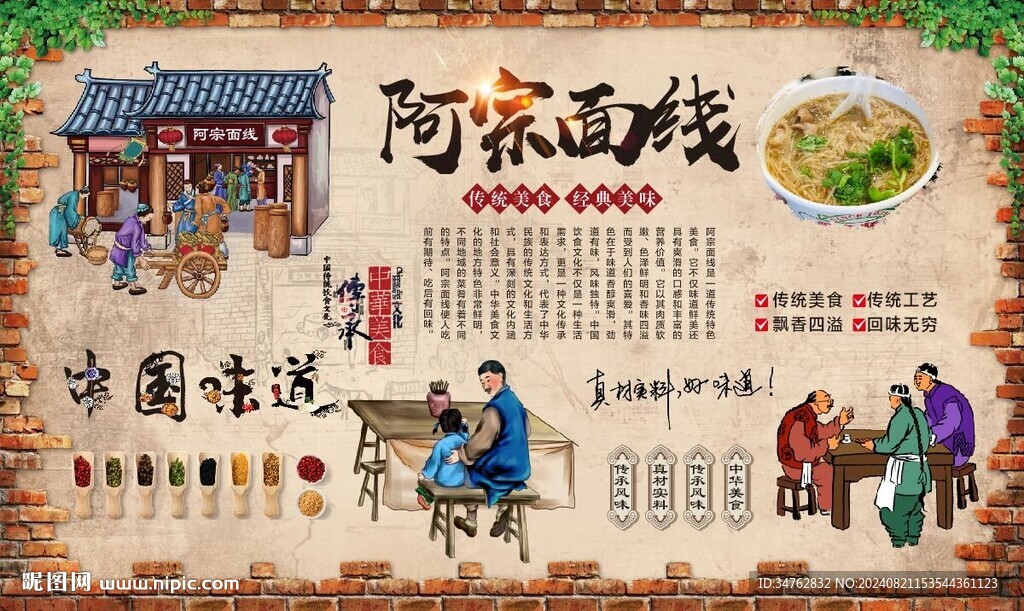 阿宗面线
阿宗面线
传统美食 经典美味
阿宗面线是一道传统特色
美食。它不仅味道鲜美还
具有爽滑的口感和丰富的
营养价值。它以其肉质软
嫩、色泽鲜明和香味四溢
而受到人们的喜爱。其特
色在于味道香醇爽滑，劲
道有味，风味独特。中国
饮食文化不仅是一种生活
需求，更是一种文化传承
和表达方式，代表了中华
民族的传统文化和生活方
式，具有深刻的文化内涵
和社会意义。中华美食文
化的地方特色非常鲜明，
不同地域的菜肴有着不同
的特点。阿宗面线使人吃
前有期待、吃后有回味。
文化
中華美食
傳承
中国传统饮食文化
传统美食 传统工艺
飘香四溢 回味无穷
中国味道
真材实料，好味道！
中华美食
传承风味
真材实料
传承风味
昵图网 www.nipic.com
ID:34762832 NO:20240821153544361123